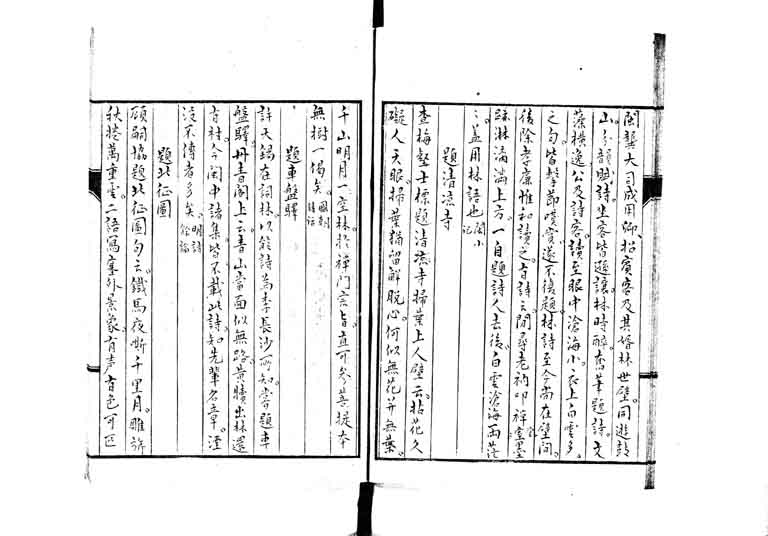 閩龔大司成用卿招賓客及其婿林世璧同遊鼓
山分韻賦詩坐客皆遜讓林時醉奮筆題詩文
藻横逸公及詩客讀至眼中滄海小衣上白雲多
之句皆擊節嘆賞遂不復題林詩至今尚在壁間
後除孝廉惟和讀之有詩云閒尋老衲叩禪室墨
跡淋漓滿上方一自題詩人去後白雲滄海兩茫
茫盖用林語也閩小記
題清凉寺
查梅壑士標題清凉寺掃葉上人壁云拈花久
礙人天眼掃葉猶留解脱心何似無花并無葉
千山明月一空林於禪門宗旨直可參菩提本
無樹一偈矣國朝詩話
題車盤驛
許天錫在詞林以能詩為李長沙所知嘗題車
盤驛丹青閣上云青山當面似無路黄犢出林還
有村今閩中諸集皆不載此詩知先輩名章湮
没不傳者多矣明詩綜話
題北征圖
顧嗣協題北征圖句云鐵馬夜嘶千里月雕旂
秋捲萬重雲二語寫塞外景象有声有色可匹